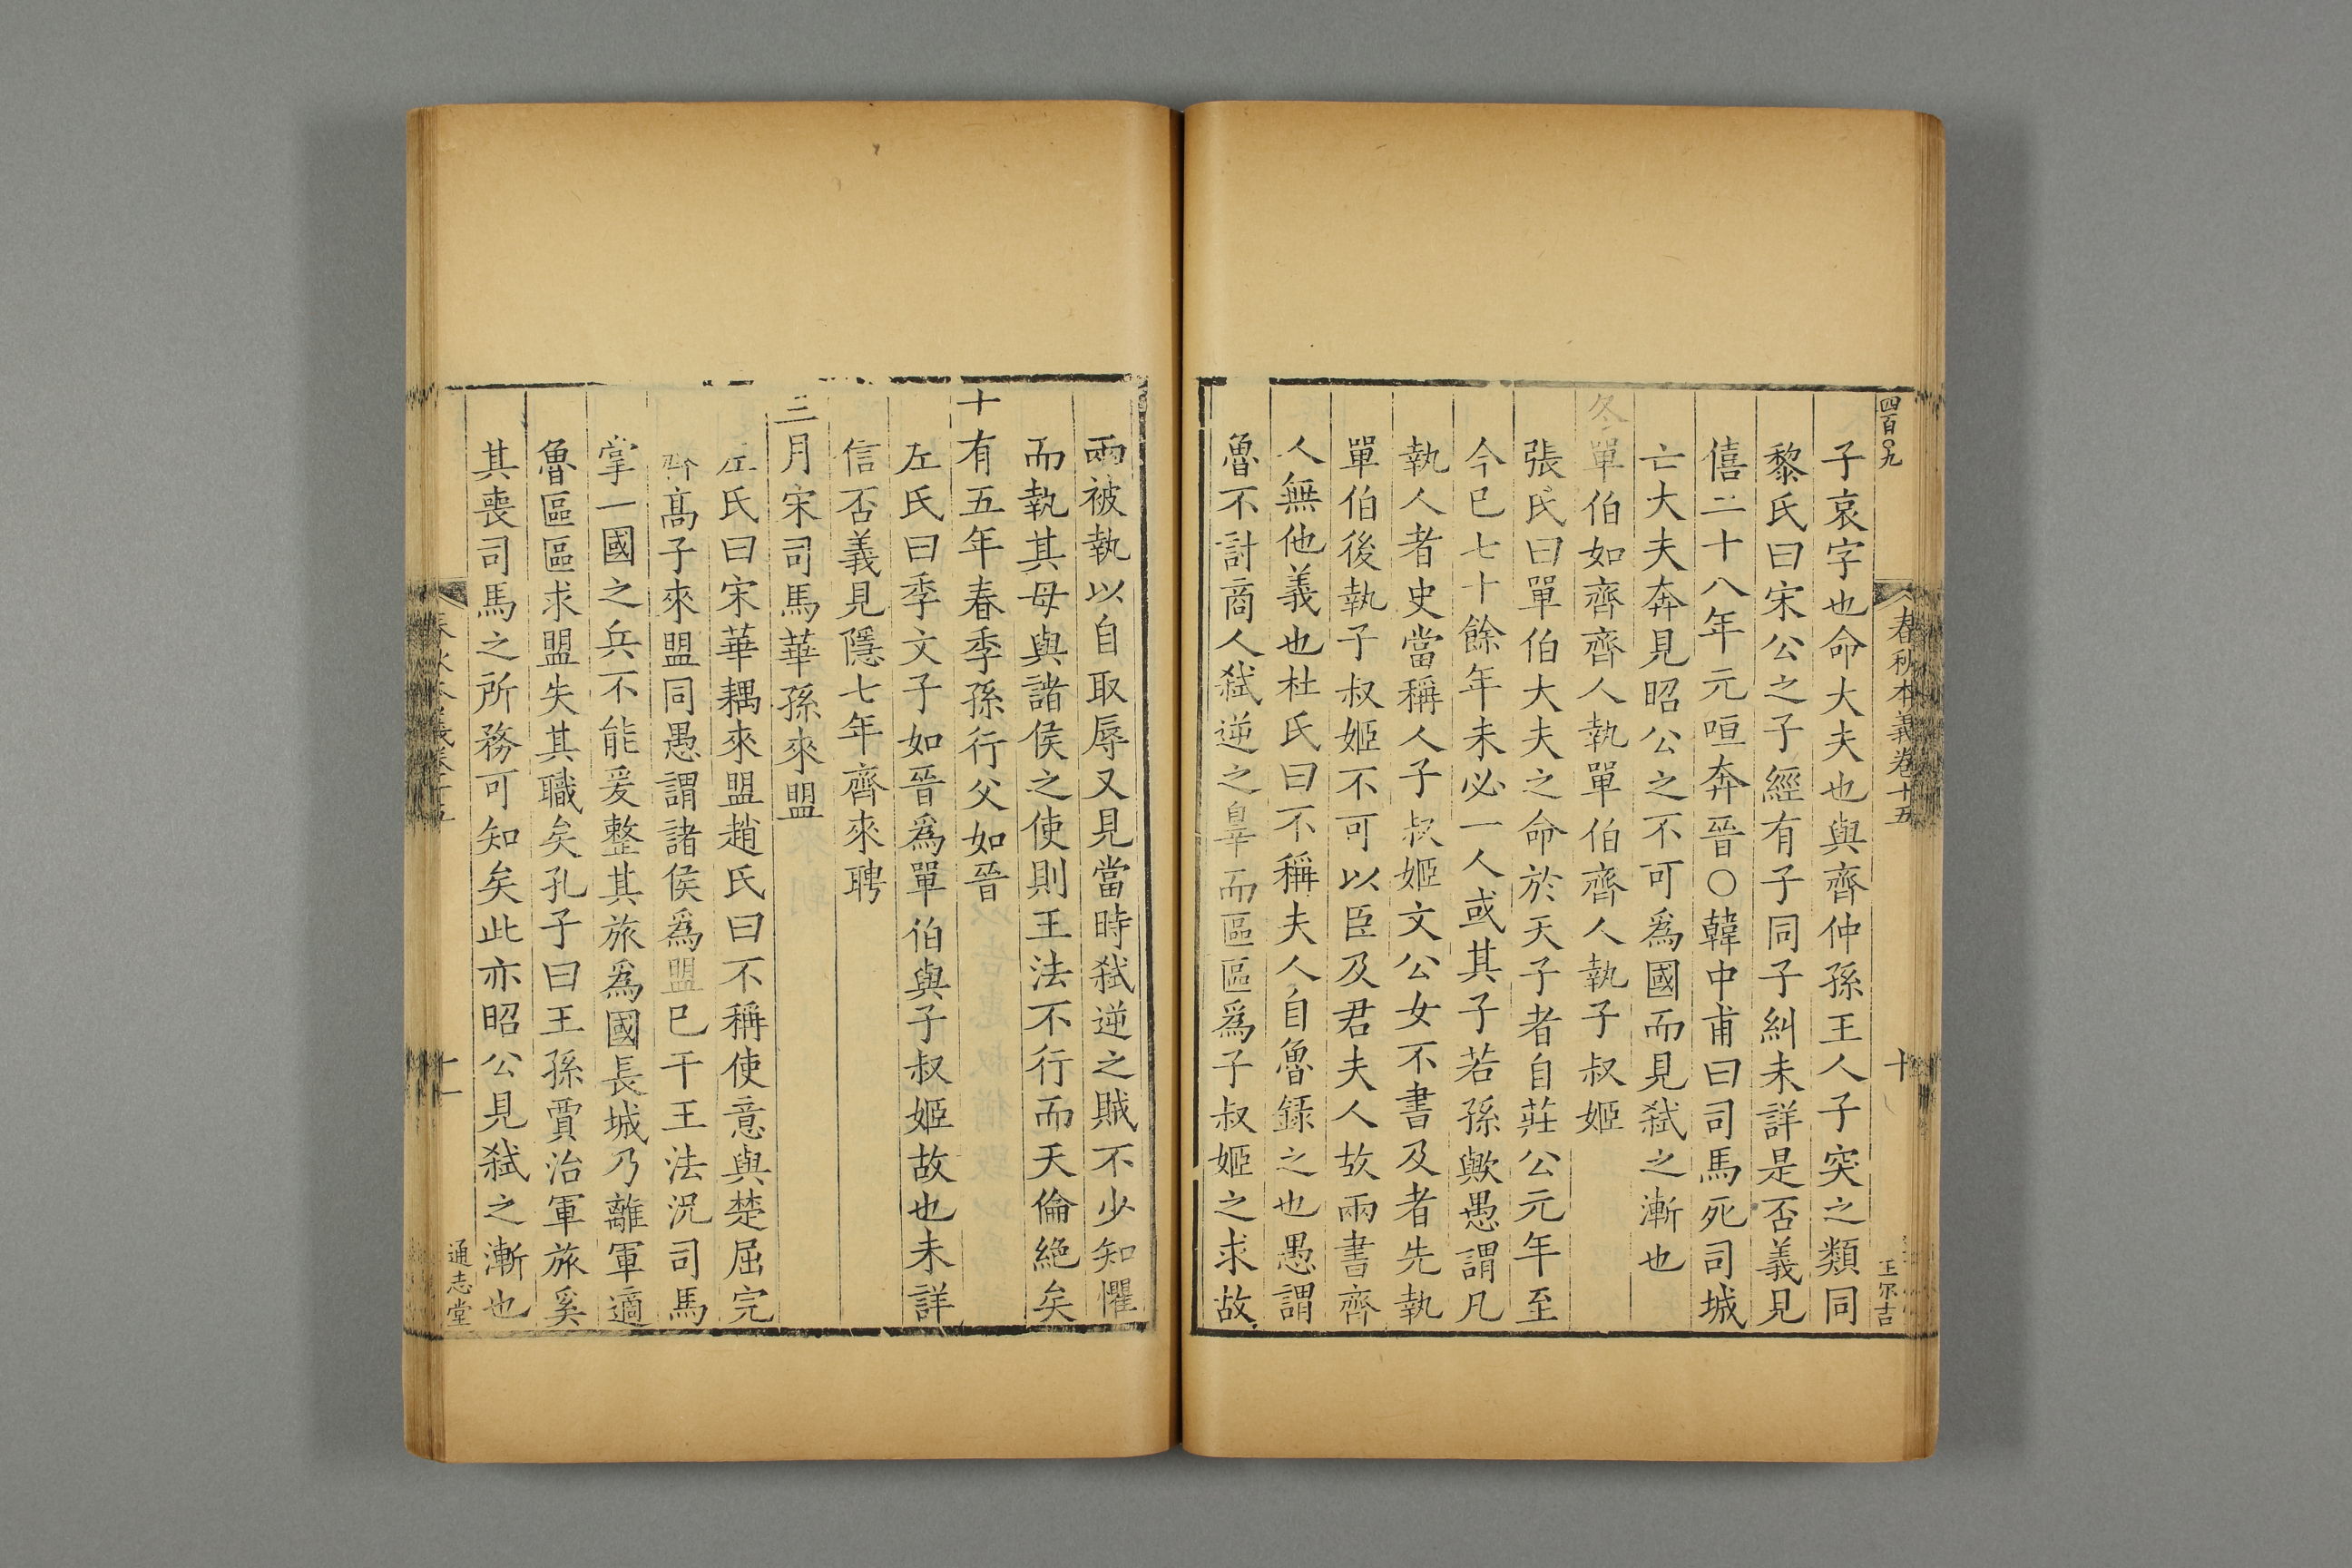 四百〇九
春秋本義卷十五
十
子哀字也命大夫也與齊仲孫王人子突之類同
黎氏曰宋公之子經有子同子糾未詳是否義見
僖二十八年元咺奔晉〇韓中甫曰司馬死司城
亡大夫奔見昭公之不可爲國而見弑之漸也
冬單伯如齊齊人執單伯齊人執子叔姬
張氏曰單伯大夫之命於天子者自莊公元年至
今已七十餘年未必一人或其子若孫歟愚謂凡
執人者史當稱人子叔姬文公女不書及者先執
單伯後執子叔姬不可以臣及君夫人故兩書齊
人無他義也杜氏曰不稱夫人自魯錄之也愚謂
魯不討商人弑逆之辠而區區爲子叔姬之求故
兩被執以自取辱又見當時弑逆之賊不少知懼
而執其母與諸侯之使則王法不行而天倫絶矣
十有五年春季孫行父如晉
左氏曰季文子如晉爲單伯與子叔姬故也未詳
信否義見隱七年齊來聘
三月宋司馬華孫來盟
左氏曰宋華耦來盟趙氏曰不稱使意與楚屈完
齊髙子來盟同愚謂諸侯爲盟已干王法況司馬
掌一國之兵不能爰整其旅爲國長城乃離軍適
魯區區求盟失其職矣孔子曰王孫賈治軍旅奚
其喪司馬之所務可知矣此亦昭公見弑之漸也
十一
通志堂